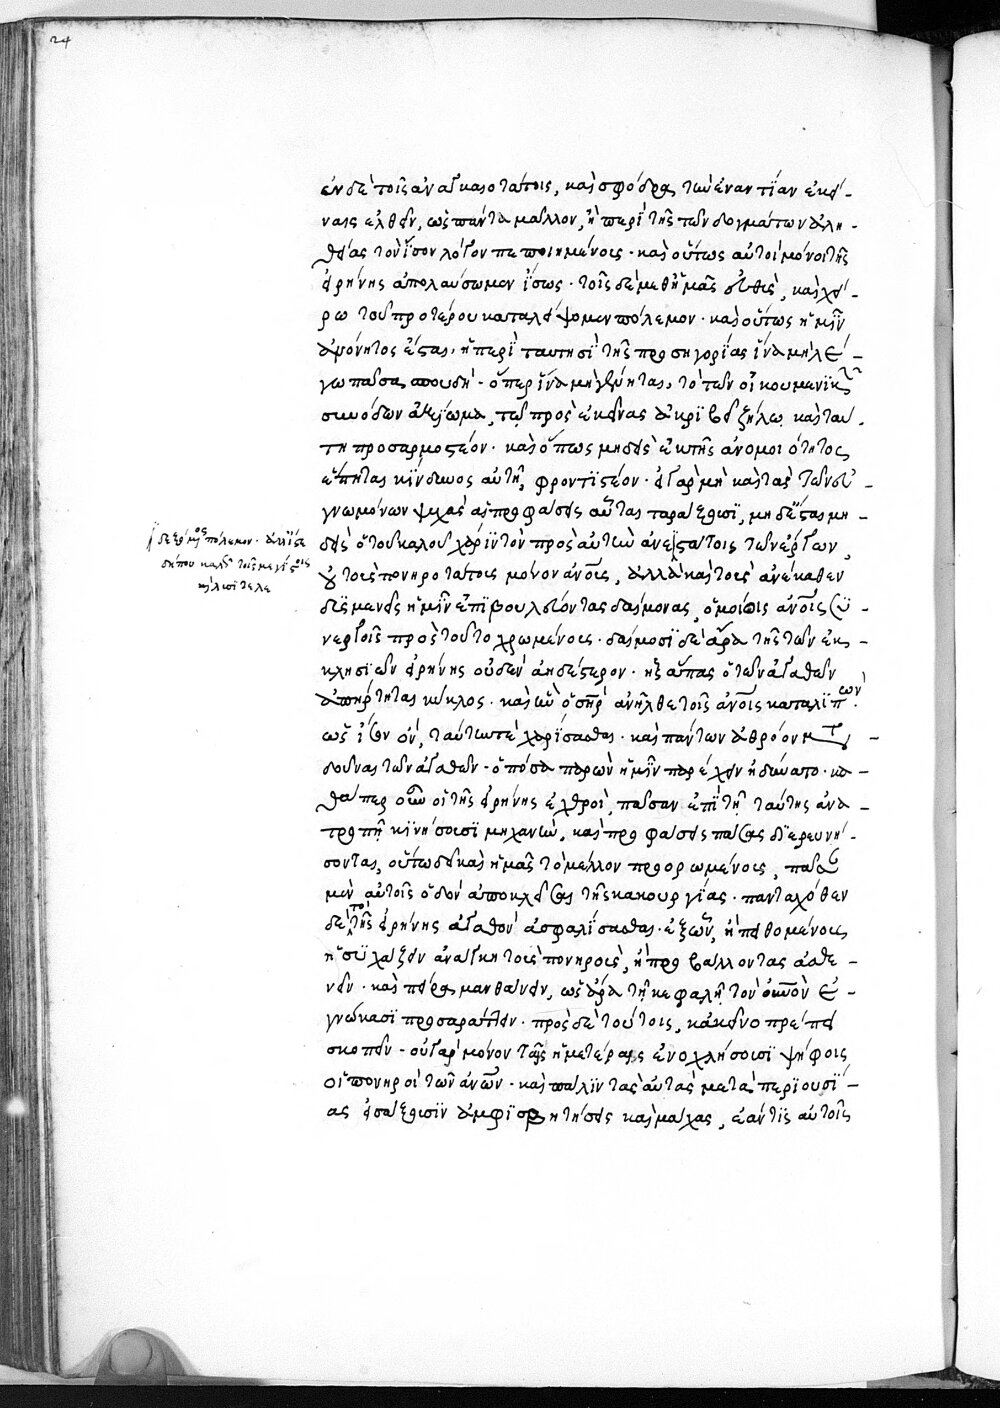 24
ἐν δὲ τοῖς ἀναγκαιοτάτοις, καὶ σφόδρα τὴν ἐναντίαν ἐκεί-
νοις ἐλθεῖν, ὡς πάντα μᾶλλον, ἢ περὶ τῆς τῶν δογμάτων ἀλη-
θείας τὸν ἴσον λόγον πεποιημένοις· καὶ οὕτως αὐτοὶ μόνοι τῆς
εἰρήνης ἀπολαύσωμεν ἴσως· τοῖς δὲ μεθ' ἡμᾶς αὖθις, καὶ χεί-
ρω τοῦ προτέρου καταλείψομεν πόλεμον· καὶ οὕτως ἡμῖν
ἀνόνητος ἔσται, ἡ περὶ ταυτησὶ τῆς προσηγορίας ἵνα μὴ λέ-
γω πᾶσα σπουδή· ὅπερ ἵνα μὴ γένηται, τὸ τῶν οἰκουμενικῶν
συνόδων ἀξίωμα, τῷ πρὸς ἐκείνας ἀκριβεῖ ζήλῳ καὶ ταύ-
τῃ προσαρμοστέον· καὶ ὅπως μηδεὶς ἐκ τῆς ἀνομοιότητος
ἕπηται κίνδυνος αὐτῇ, φροντιστέον· εἰ γὰρ μὴ καὶ τὰς τῶν εὐ-
γνωμόνων ψυχὰς αἱ προφάσεις αὗται ταράξωσι, μὴ δείσας μη-
δεὶς ὁ τοῦ καλοῦ χάριν τὸν πρὸς αὐτὴν ἀνεῖται τοῖς τῶν ἔργων,
οὐ τοῖς πονηροτάτοις μόνον ἀνοις, ἀλλὰ καὶ τοὺς ἀνέκαθεν
δυσμενεῖς ἡμῖν ἐπιβουλεύοντας δαίμονας, ὁμοίοις ἀνοις συ-
νεργοῖς πρὸς τοῦτο χρωμένους· δαίμοσι δὲ ἄρα τῆς τῶν ἐκ-
κλησιῶν εἰρήνης οὐδὲν ἀηδέστερον· ἧς ἅπας ὁ τῶν ἀγαθῶν
ἀπήρτηται κύκλος· καὶ ἣν ὁ σηρ ἀνῆλθε τοῖς ἀνοις καταλιπών·
ὡς ἰσον ὂν, ταύτην τὲ χαρίσασθαι· καὶ πάντων ἀθρόον
δοῦναι τῶν ἀγαθῶν· ὁπόσα παρὼν ἡμῖν παρέχειν ἠδύνατο· κα-
θάπερ οὖν οἱ τῆς εἰρήνης ἐχθροὶ, πᾶσαν ἐπὶ τῇ ταύτης ἀνα-
τροπῇ κινήσουσι μηχανὴν, καὶ προφάσεις πάσας διερευνή-
σονται, οὕτω δεῖ καὶ ἡμᾶς τὸ μέλλον προορωμένους, πᾶσαν
μὲν αὐτοῖς ὁδὸν ἀποκλεῖσαι τῆς κακουργίας· πανταχόθεν
δὲ τὸ τῆς εἰρήνης ἀγαθὸν ἀσφαλίσασθαι· ἐξ ὧν, ἢ πειθομένους
ἡσυχάζειν ἀνάγκη τοὺς πονηροὺς, ἢ προσβάλλοντας ἀσθε-
νεῖν· καὶ πείρᾳ μανθάνειν, ὡς ἄρα τῇ κεφαλῇ τὸν οὐνὸν ἐ-
γνώκασι προσαράττειν· πρὸς δὲ τούτοις, κἀκεῖνο πρέπει
σκοπεῖν· οὐ γὰρ μόνον ταῖς ἡμετέραις ἐνοχλήσουσι ψήφοις
οἱ πονηροὶ τῶν ἀνων· καὶ πάλιν τὰς αὐτὰς μετὰ περιουσί-
ας εἰσάξουσιν ἀμφισβητήσεις καὶ μάχας, ἐάν τις αὐτοῖς
πόλεμον· ἀλλ'